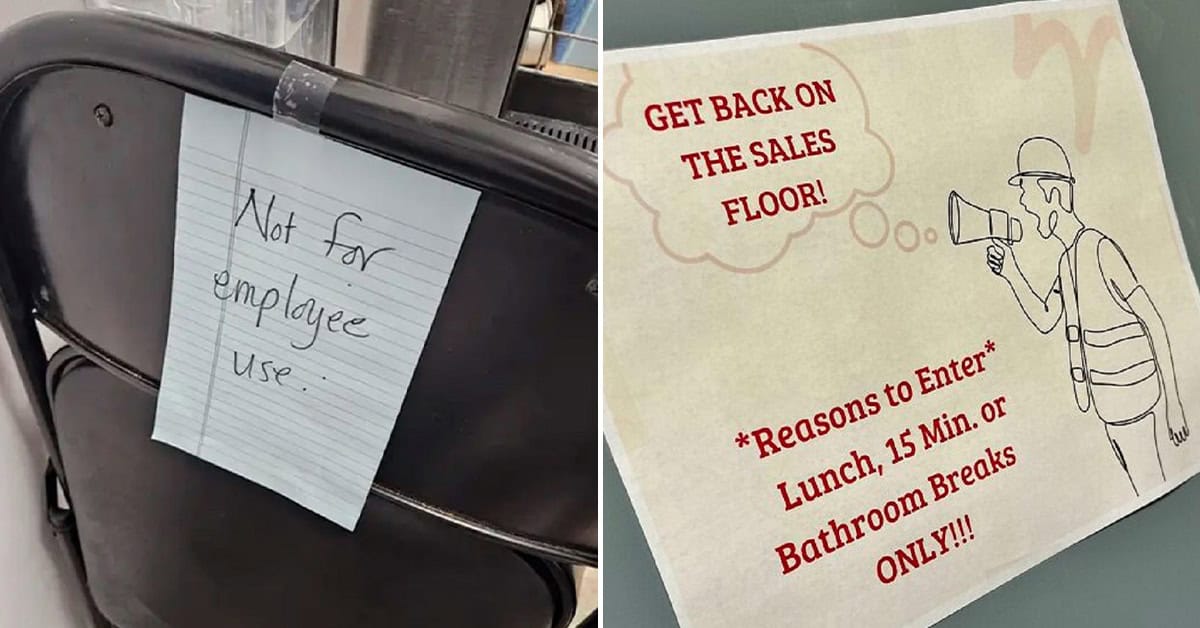 Not for
employee
use.
GET BACK ON
THE SALES
FLOOR!
*Reasons to Enter*
Lunch, 15 Min. or
Bathroom Breaks
ONLY!!!